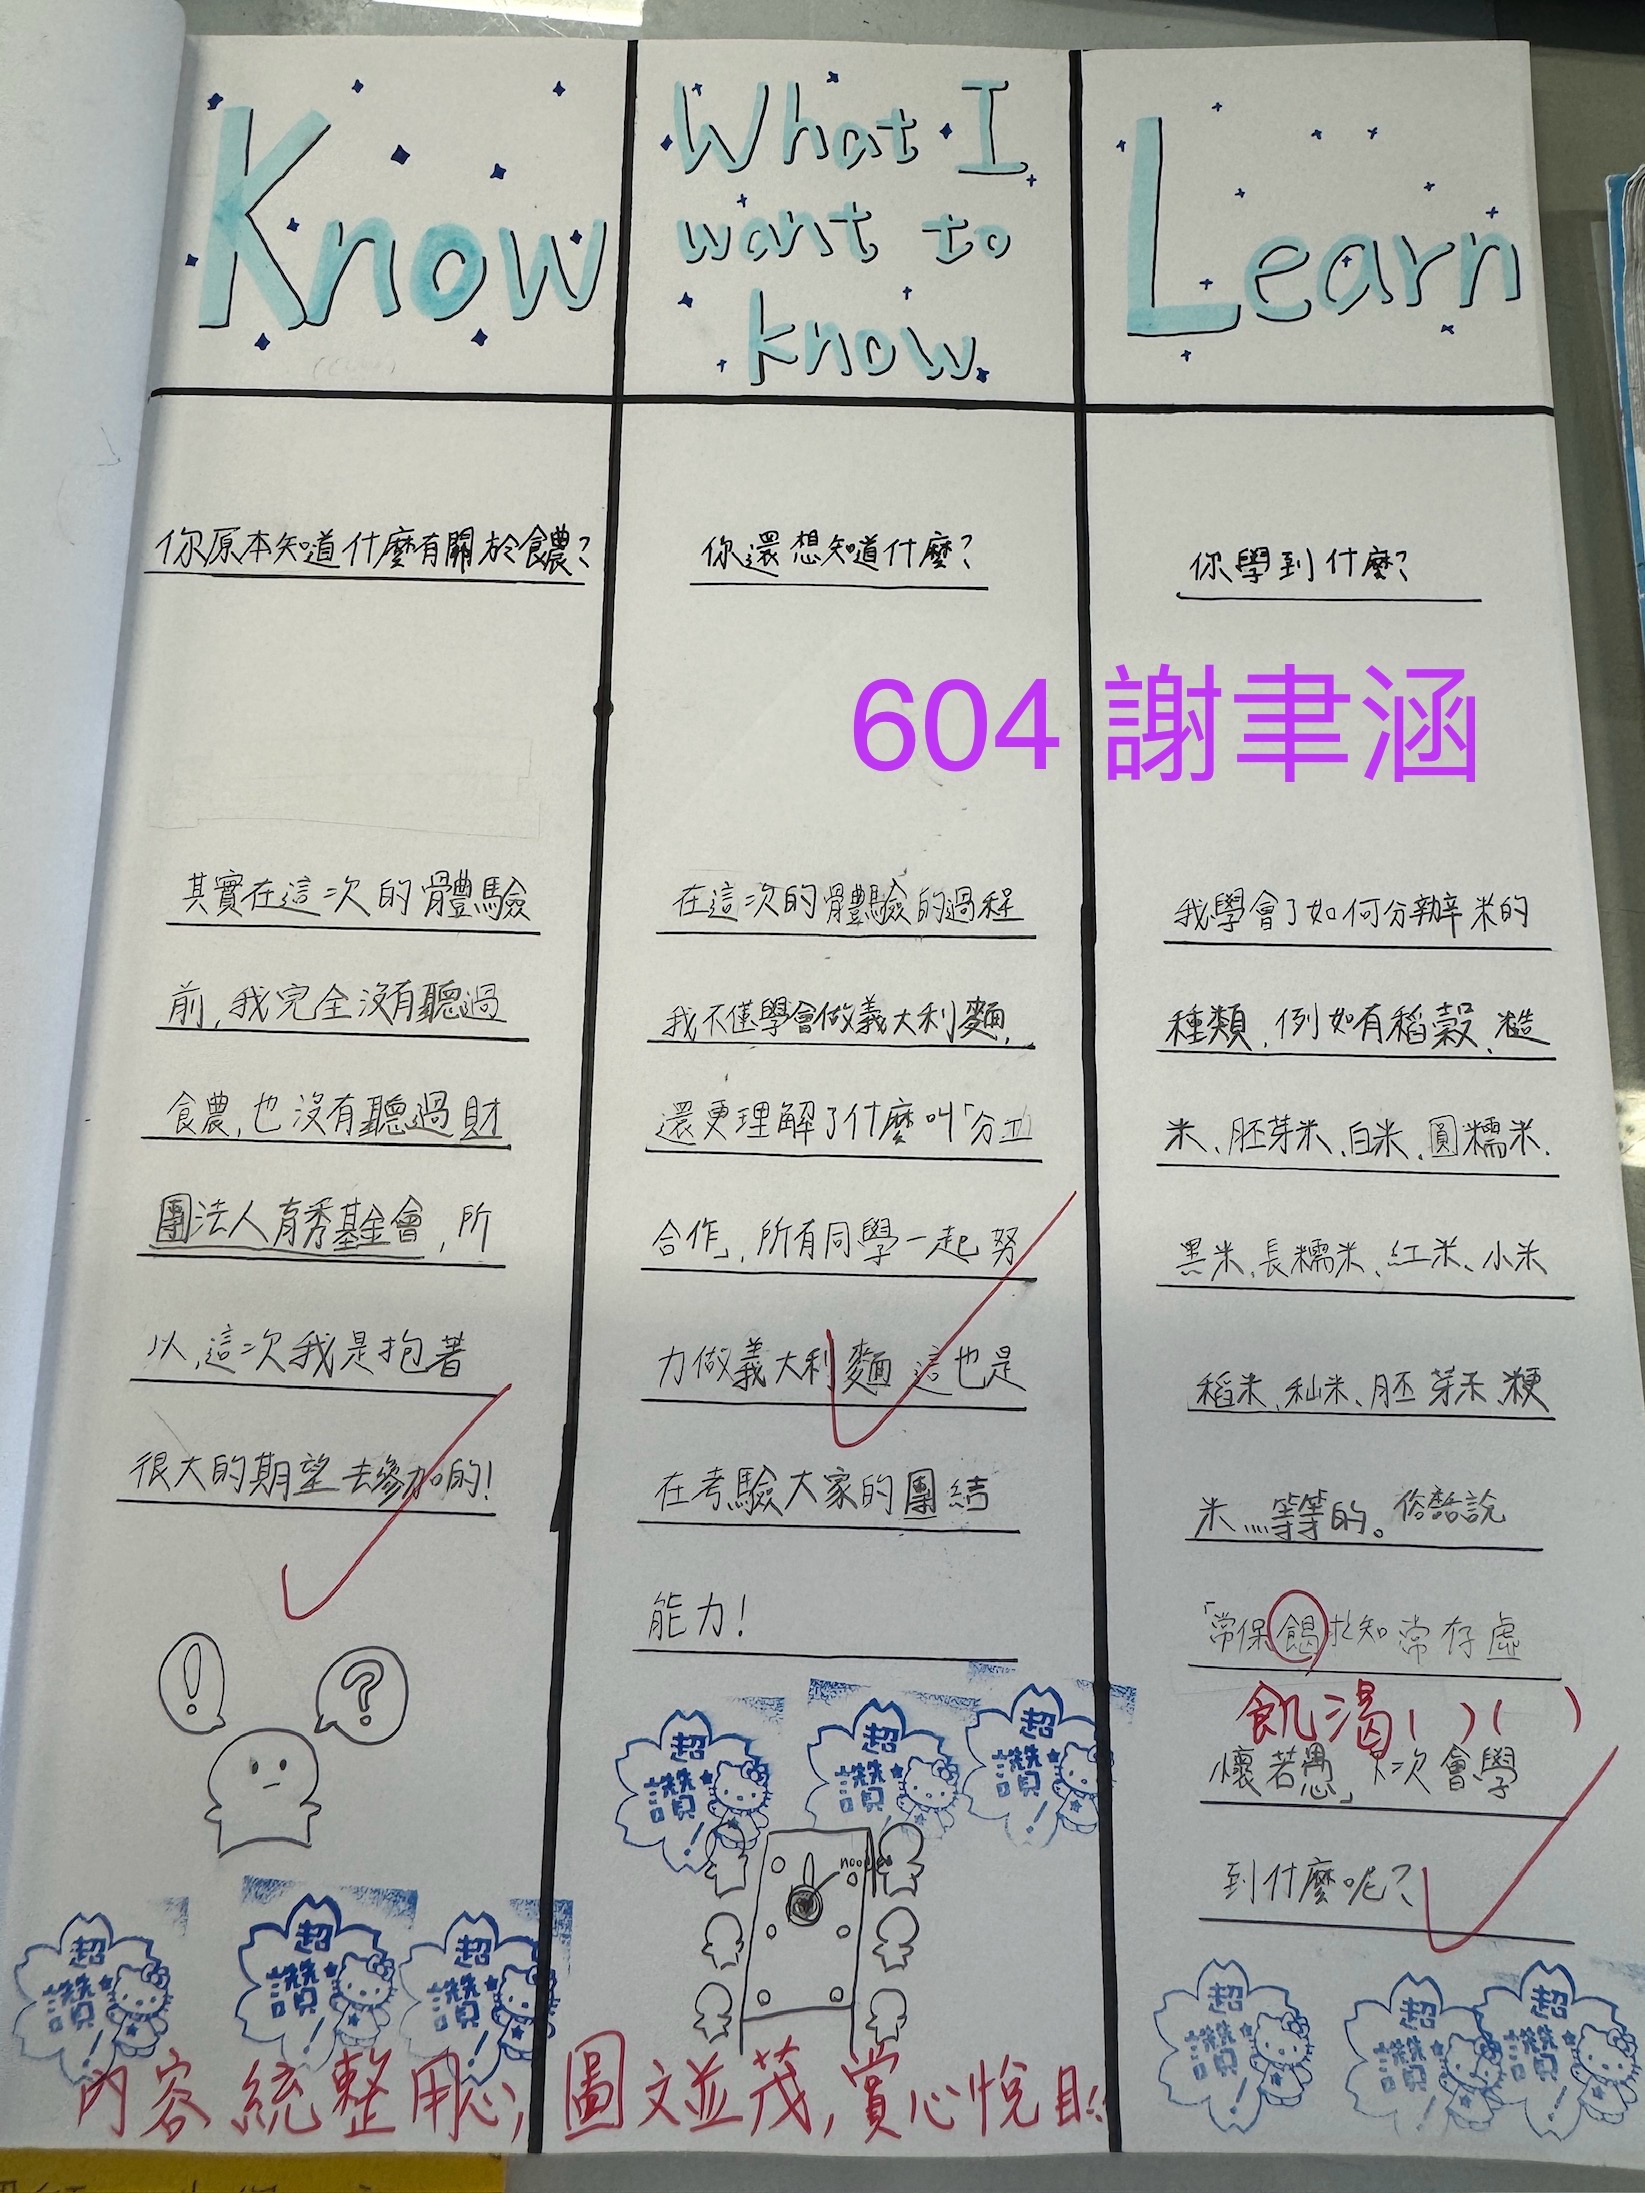 Know
你原本知道什麼有關於食農?
其實在這次的體驗
前,我完全沒有聽過
食農,也沒有聽過財
團法人育秀基金會,所
以,這次我是抱著
很大的期望去參加的!
!
?
超讚!
超讚!
超讚!
What I
want to
know
你還想知道什麼?
604 謝聿涵
在這次的體驗的過程
我不僅學會做義大利麵,
還更理解了什麼叫「分工
合作」,所有同學一起努
力做義大利麵 這也是
在考驗大家的團結
能力!
超讚!
超讚!
超讚!
Learn
你學到什麼?
我學會了如何分辦米的
種類,例如有稻穀、糙
米、胚芽米、白米、圓糯米、
黑米、長糯米、紅米、小米
稻米、秈米、胚芽米、粳
米……等等的。俗話說
「常保 求知 常存虛
飢渴( )( )
懷若愚」下次會學
到什麼呢?
超讚!
超讚!
超讚!
內容統整用心,圖文並茂,賞心悅目!